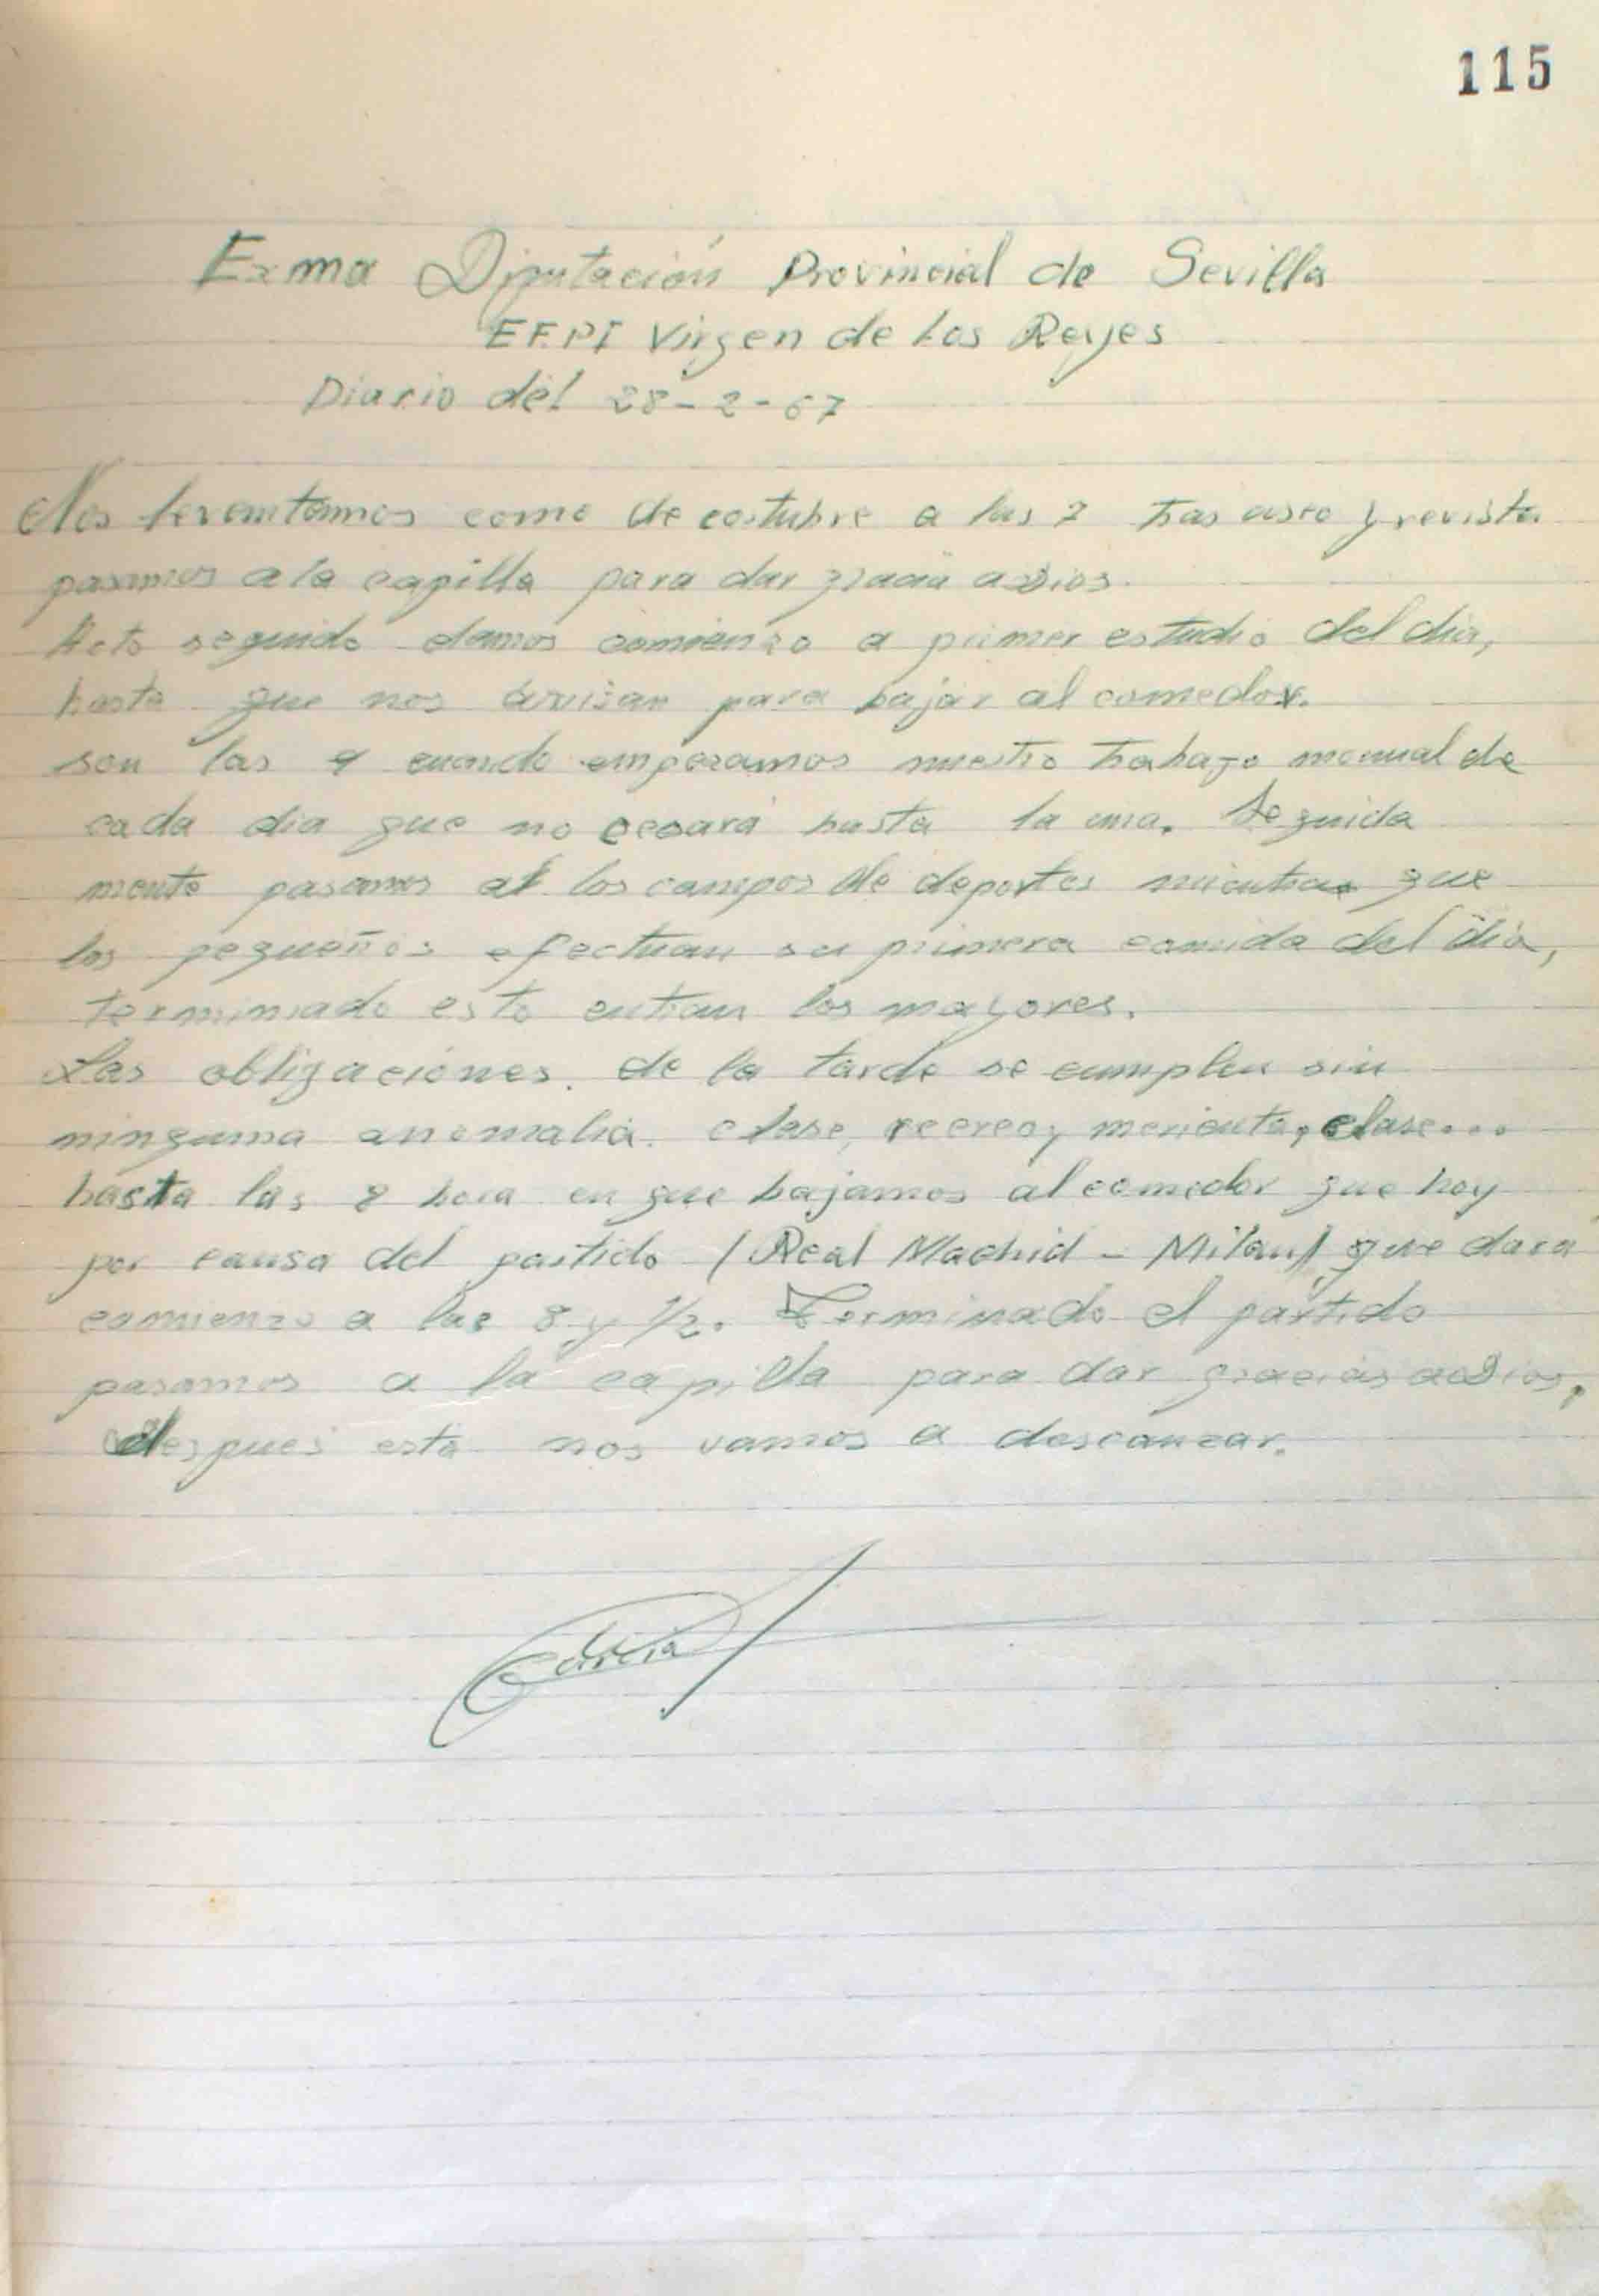 115
Exma Diputación Provincial de Sevilla
EFPI Virgen de los Reyes
Diario del 28-2-67
Nos levantamos como de costubre a las 7 tras aseo y revista
pasamos a la capilla para dar gracia a Dios.
Acto seguido damos comienzo a primer estudio del dia,
hasta que nos avisan para bajar al comedor.
son las 9 cuando empezamos nuestro trabajo manual de
cada dia que no cesará hasta la una. Seguida
mente pasamos a los campos de deportes mientras que
los pequeños efectuan su primera comida del dia,
terminado esto entran los mayores.
Las obligaciones. de la tarde se cumplen sin
ninguna anomalia. clase, recreo, merienta, clase...
hasta las 8 hora en que bajamos al comedor que hoy
por causa del partido (Real Madrid - Milan) que dara
comienzo a las 8 y 1/2. Terminado el partido
pasamos a la capilla para dar gracias a Dios,
despues esto nos vamos a descanzar.
Garcia